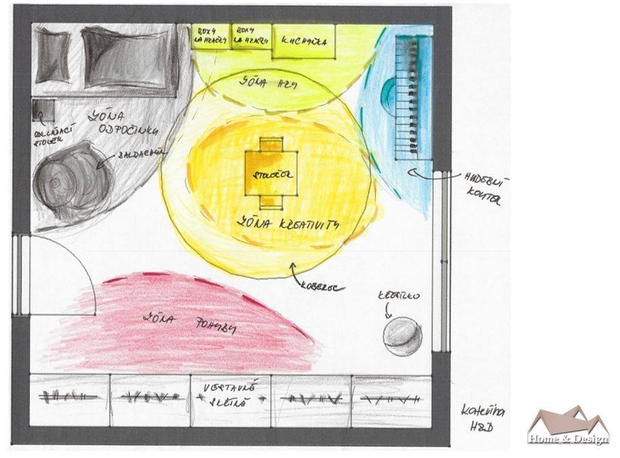 BOXY
NA HRAČKY
BOXY
NA HRAČKY
KUCHYŇKA
ZÓNA HRY
ZÓNA
ODPOČINKU
ODKLÁDACÍ
STOLEK
BALDACHÝN
STOLEČEK
HUDEBNÍ
KOUTEK
ZÓNA KREATIVITY
KOBEREC
ZÓNA POHYBU
KŘESÍLKO
VESTAVNÉ
SKŘÍNĚ
Kateřina
H&D
Home & Design